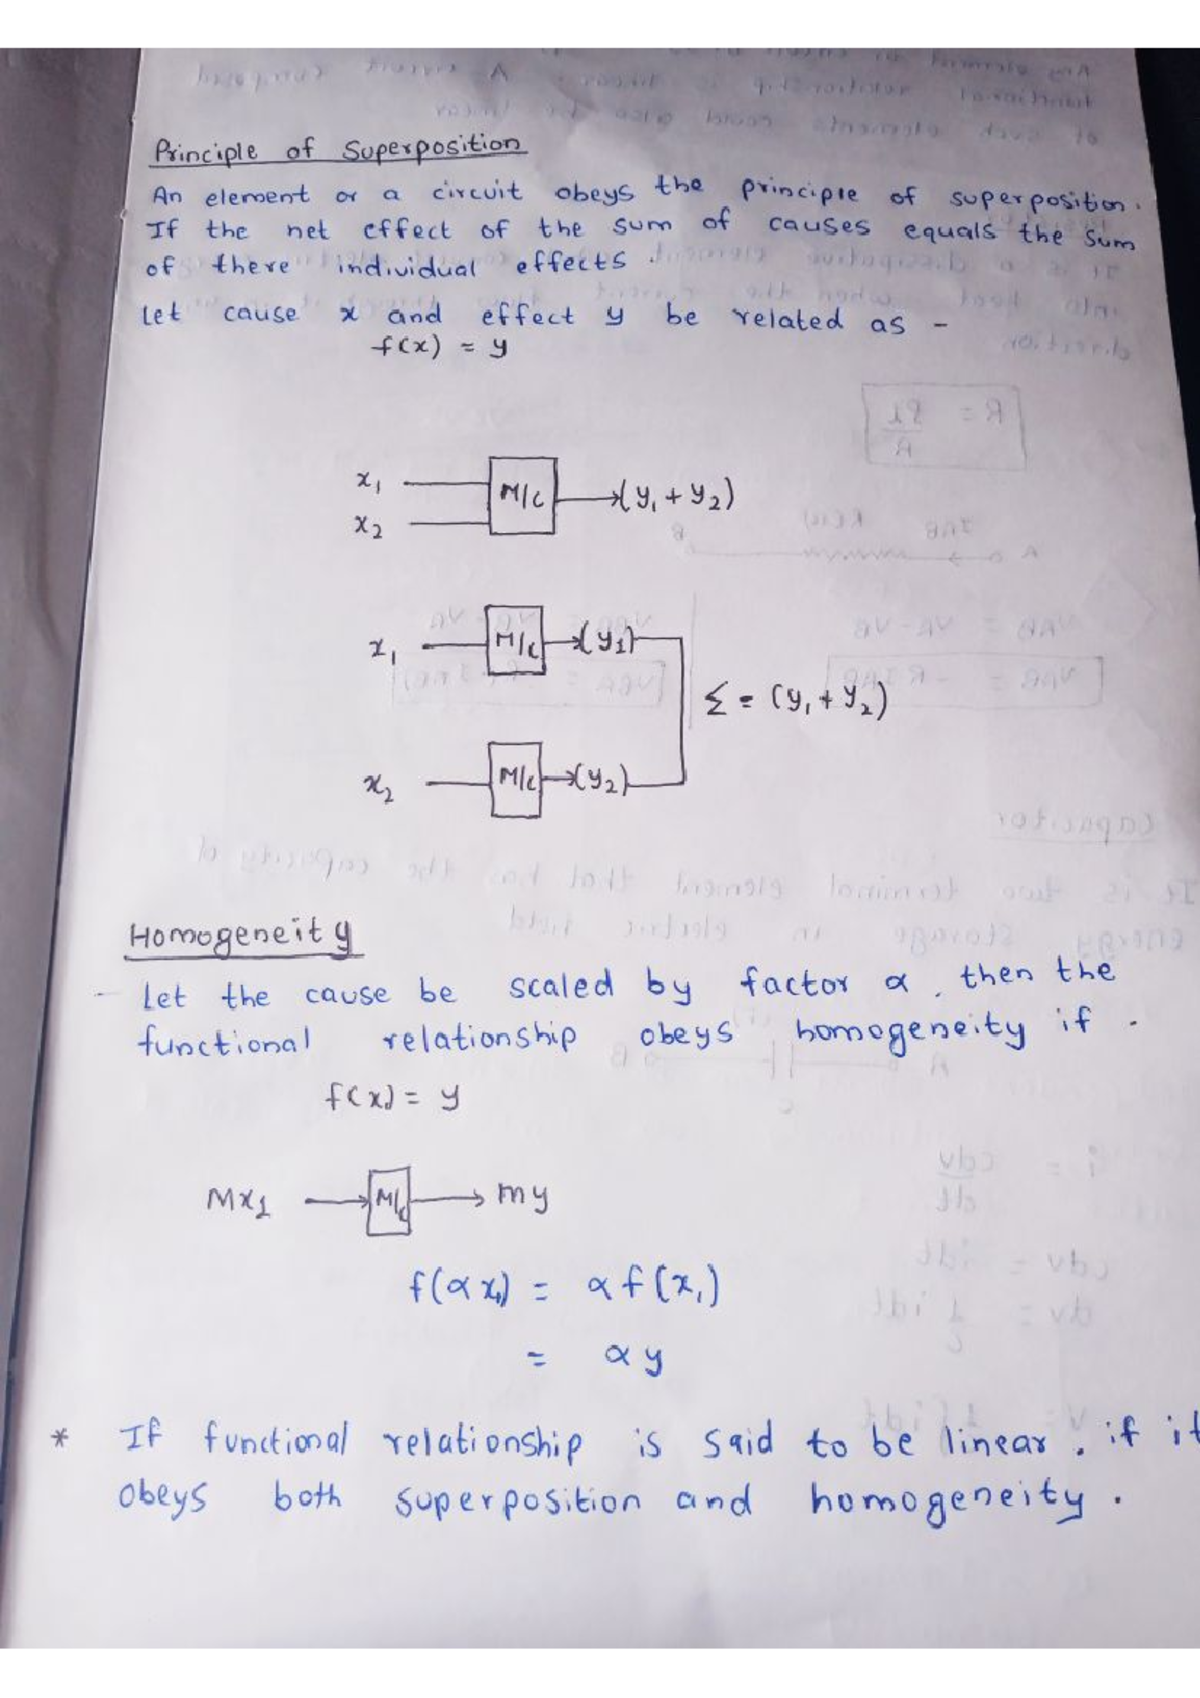 Principle of Superposition
An element or a circuit obeys the principle of superposition.
If the net effect of the sum of causes equals the sum
of there individual effects.
Let cause x and effect y be related as -
f(x) = y
x₁ M/c (y₁ + y₂)
x₂
x₁ M/c (y₁)
Σ = (y₁ + y₂)
x₂ M/c (y₂)
Homogeneity
- Let the cause be scaled by factor α, then the
functional relationship obeys homogeneity if.
f(x) = y
Mx₁ M/c my
f(αx₁) = αf(x₁)
= αy
* If functional relationship is said to be linear, if it
obeys both superposition and homogeneity.